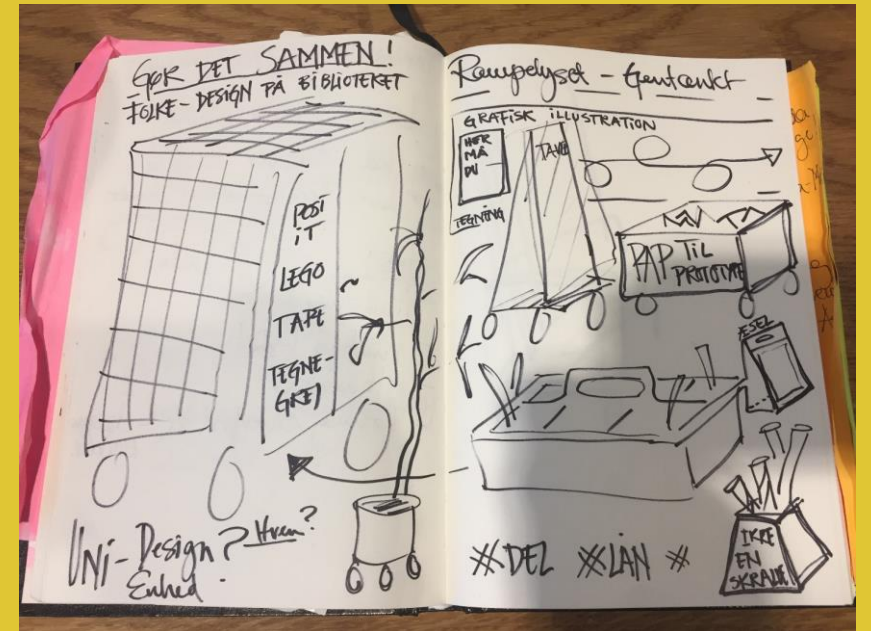 GØR DET SAMMEN!
FOLKE-DESIGN PÅ BIBLIOTEKET
POST
IT
LEGO
TAPE
TEGNE-
GREJ
UNI-Design? Hvem?
Enhed
Rampelyset - Gentænkt
GRAFISK ILLUSTRATION
HER
MÅ
DU
TAVLE
TEGNING
PAP TIL
PROTOTYPE
ESEL
#DEL #LÅN #
IKKE
EN
SKRALDE